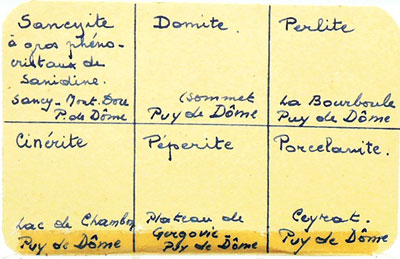 Sancyite
à gros phéno-
cristaux de
Sanidine.
Sancy-Mont-Dore
P. de Dôme
Domite.
(Sommet
Puy de Dôme
Perlite
La Bourboule
Puy de Dôme
Cinérite
Lac de Chambon
Puy de Dôme
Péperite
Plateau de
Gergovie
Puy de Dôme
Porcelanite.
Ceyrat.
Puy de Dôme